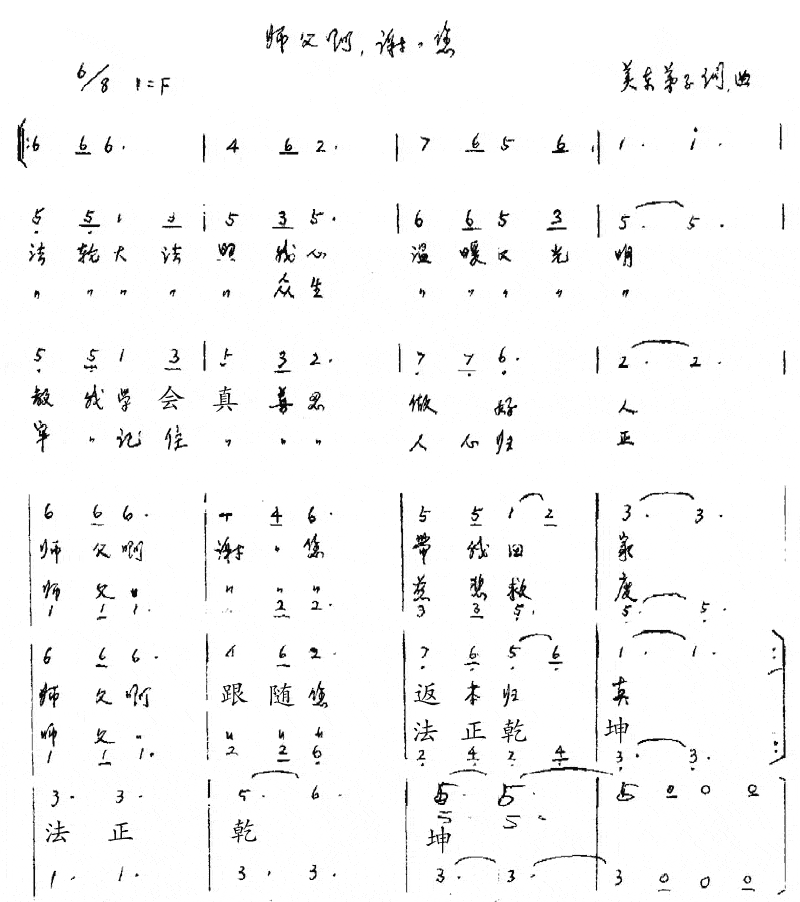 师父啊,谢谢您
6/8 1=F 美东弟子词,曲
6 6 6. | 4 6 2. | 7 6 5 6 | 1. i. |
5 5 1 3 | 5 3 5. | 6 6 5 3 | 5. 5. |
法轮大法照我心 温暖又光明
" " " " " 众生 " " " " "
5 5 1 3 | 5 3 2. | 7 7 6. | 2. 2. |
教我学会真善忍 做好人
牢 " 记住 " " " 人心归正
6 6 6. | 4 4 6. | 5 5 1 2 | 3. 3. |
师父啊 谢 " 您 带我回家
师父 " " " " 慈悲救度
1 1 1. 2 2. 3 3 5. 5. 5.
6 6 6. | 4 6 2. | 7 6 5 6 | 1. 1. :
师父啊 跟随您 返本归真
师父 " " " " 法正乾坤
1 1 1. 2 2 6 2 4 2 4 3. 3. :
3. 3. | 5. 6. | 5. 5. | 5 0 0 0
5. 5.
法正乾坤
1. 1. | 3. 3. | 3. 3. | 3 0 0 0